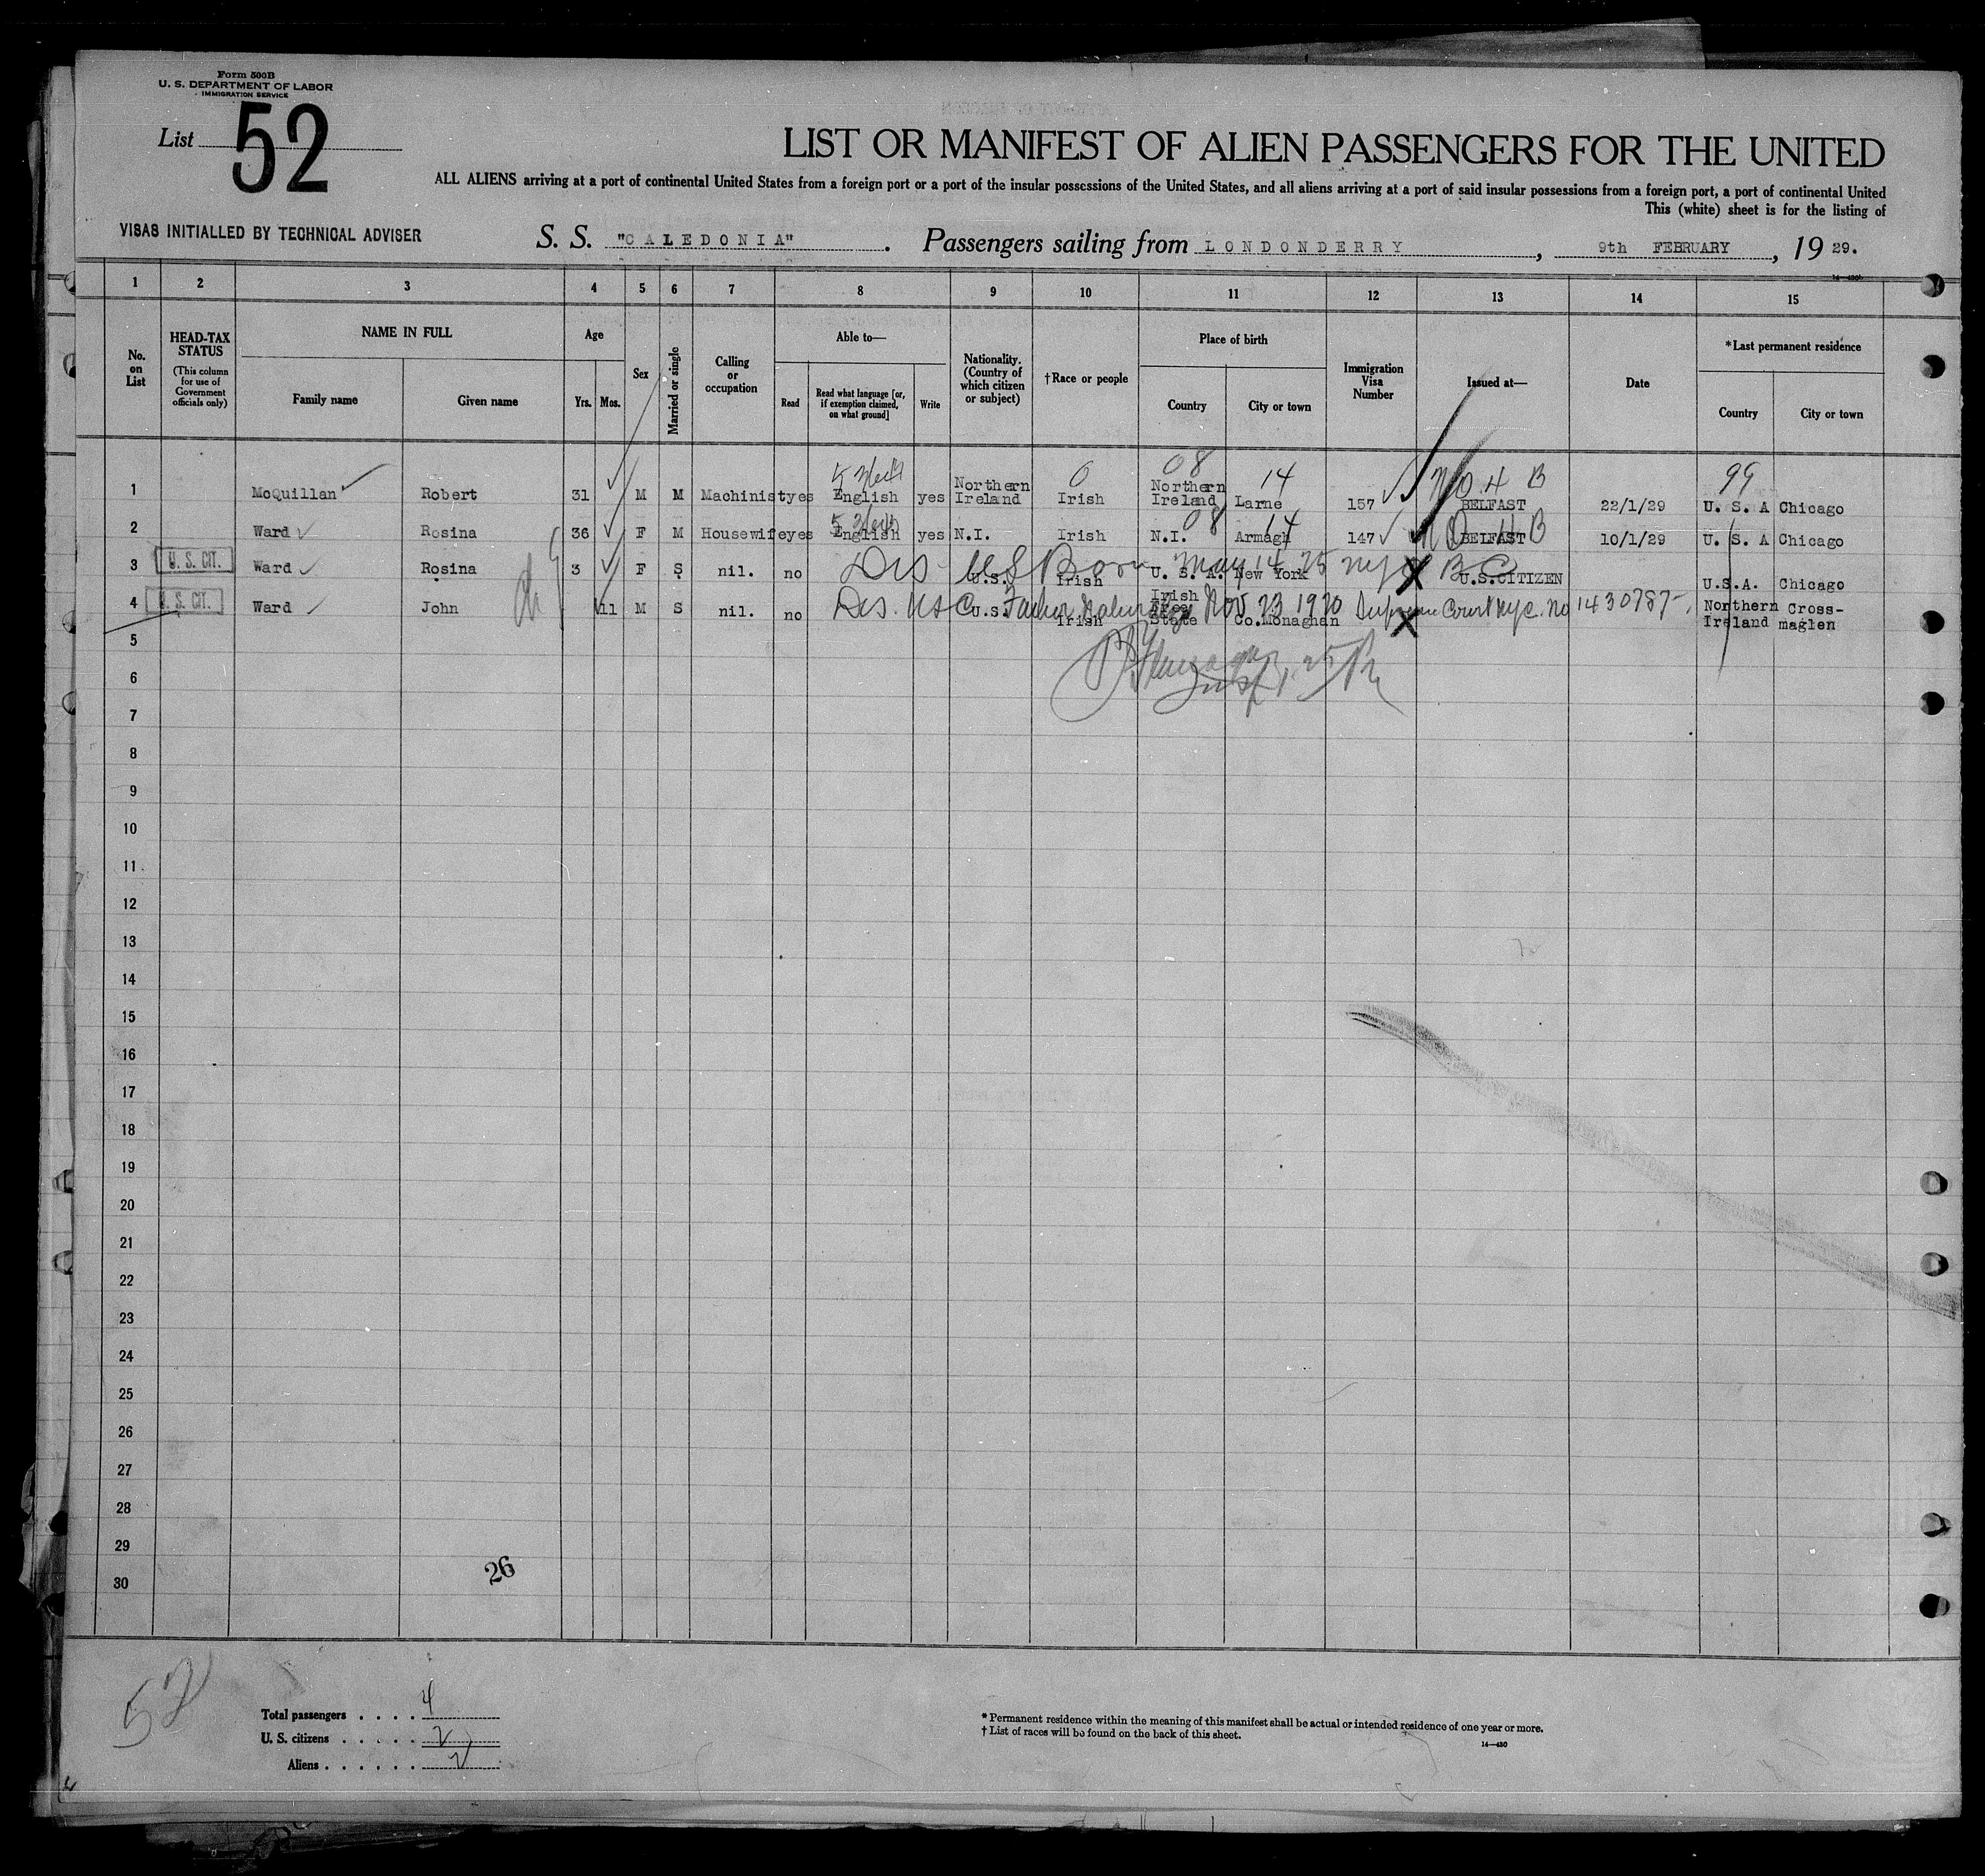 Form 500B
U. S. DEPARTMENT OF LABOR
IMMIGRATION SERVICE
List 52
LIST OR MANIFEST OF ALIEN PASSENGERS FOR THE UNITED
ALL ALIENS arriving at a port of continental United States from a foreign port or a port of the insular possessions of the United States, and all aliens arriving at a port of said insular possessions from a foreign port, a port of continental United
This (white) sheet is for the listing of
VISAS INITIALLED BY TECHNICAL ADVISER
S. S. "CALEDONIA". Passengers sailing from LONDONDERRY, 9th FEBRUARY, 19 29.
1 2 3 4 5 6 7 8 9 10 11 12 13 14 15
No. on List
HEAD-TAX STATUS
(This column for use of Government officials only)
NAME IN FULL
Family name
Given name
Age
Yrs. Mos.
Sex
Married or single
Calling or occupation
Able to—
Read
Read what language [or, if exemption claimed, on what ground]
Write
Nationality. (Country of which citizen or subject)
†Race or people
Place of birth
Country
City or town
Immigration Visa Number
Issued at—
Date
*Last permanent residence
Country
City or town
08 14 99
1 McQuillan Robert 31 M M Machinist yes English yes Northern Ireland Irish Northern Ireland Larne 157 BELFAST 22/1/29 U. S. A Chicago
08 14
2 Ward Rosina 36 F M Housewife yes English yes N.I. Irish N.I. Armagh 147 BELFAST 10/1/29 U. S. A Chicago
3 U. S. CIT. Ward Rosina 3 F S nil. no U.S. Irish U. S. A. New York U.S.CITIZEN U.S.A. Chicago
US Born May 14 25 NYC B C
4 U. S. CIT. Ward John 11 M S nil. no U.S. Irish Irish Free State Co.Monaghan Northern Ireland Cross-maglen
Father Nov 23 1920 Supreme Court NYC. No 1430787
5
6
7
8
9
10
11
12
13
14
15
16
17
18
19
20
21
22
23
24
25
26
27
28
29
30
26
52
Total passengers . . . . 4
U. S. citizens . . . . . . 2
Aliens . . . . . . 2
* Permanent residence within the meaning of this manifest shall be actual or intended residence of one year or more.
† List of races will be found on the back of this sheet.
14—430